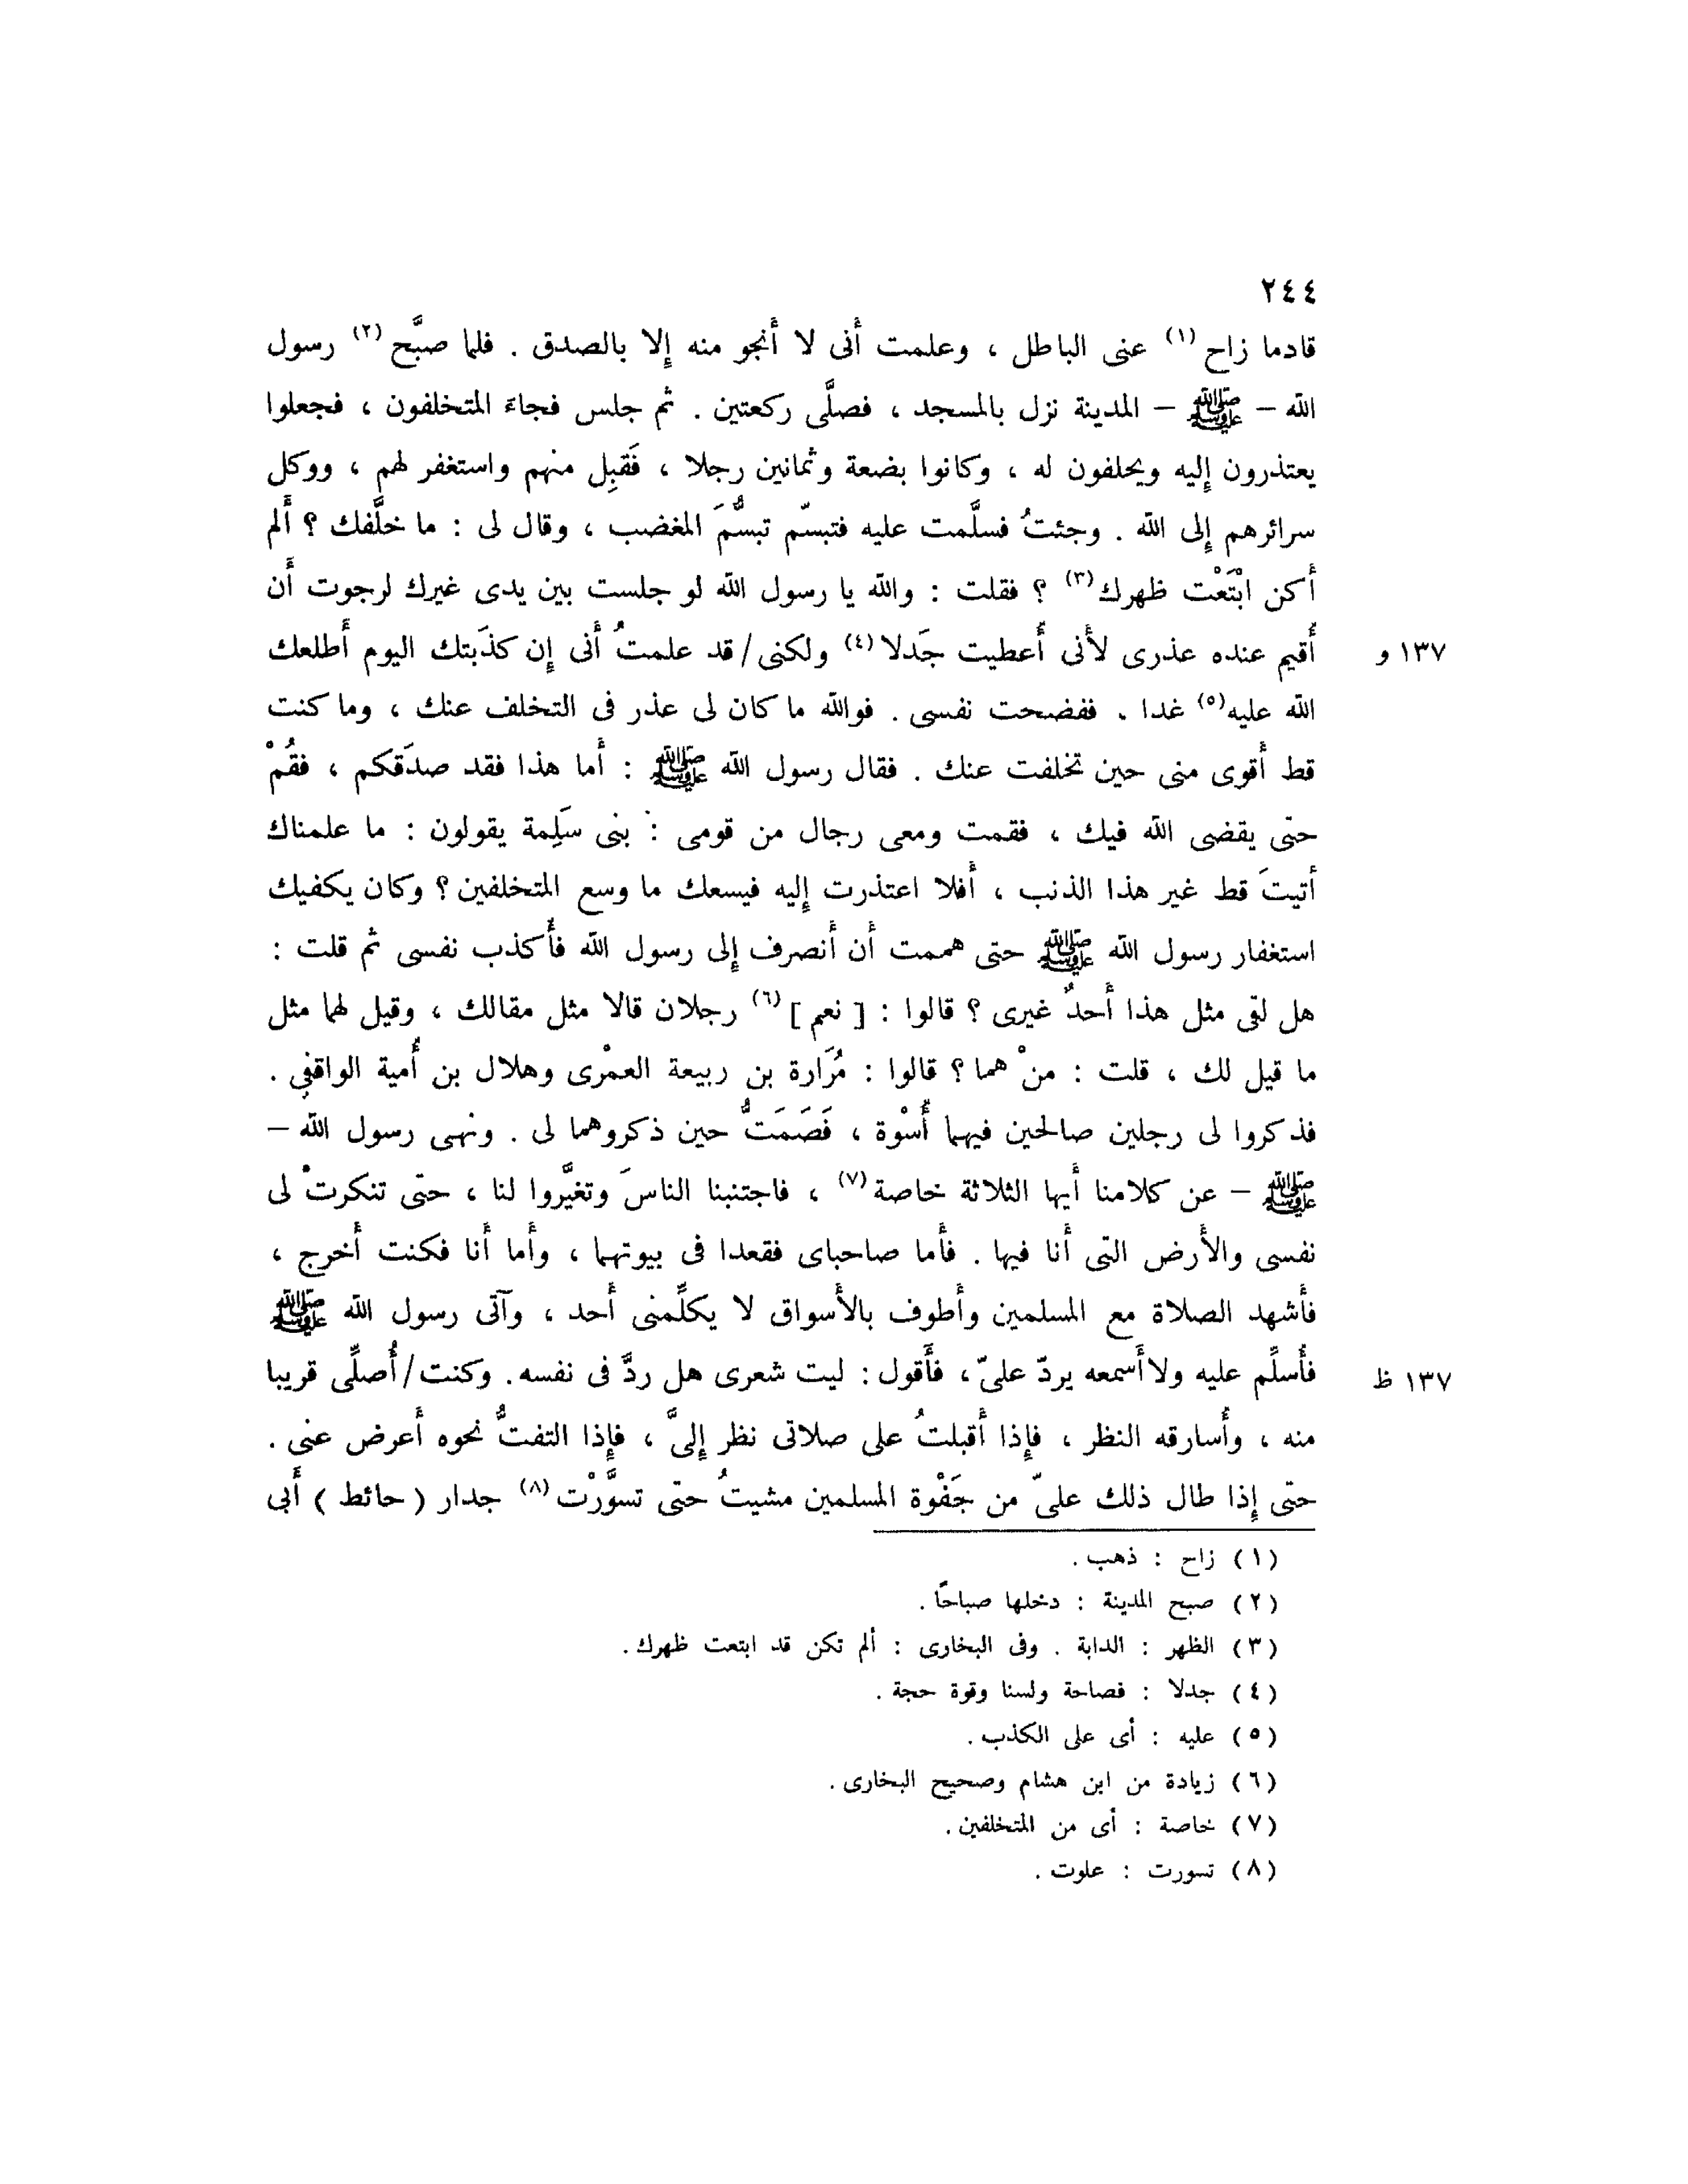 ٢٤٤
قادما زاح (١) عنى الباطل ، وعلمت أنى لا أنجو منه إلا بالصدق . فلما صبَّح (٢) رسول
الله – ﷺ – المدينة نزل بالمسجد ، فصلَّى ركعتين . ثم جلس فجاءَ المتخلفون ، فجعلوا
يعتذرون إليه ويحلفون له ، وكانوا بضعة وثمانين رجلا ، فَقَبِل منهم واستغفر لهم ، ووكل
سرائرهم إلى الله . وجئتُ فسلَّمت عليه فتبسّم تبسُّمَ المغضب ، وقال لى : ما خلَّفك ؟ ألم
أكن ابْتَعْت ظهرك (٣) ؟ فقلت : والله يا رسول الله لو جلست بين يدى غيرك لرجوت أن
أُقيم عنده عذرى لأَنى أُعطيت جَدلا (٤) ولكنى / قد علمتُ أنى إن كذَبتك اليوم أطلعك
١٣٧ و
الله عليه (٥) غدا . ففضحت نفسى . فوالله ما كان لى عذر فى التخلف عنك ، وما كنت
قط أقوى منى حين تخلفت عنك . فقال رسول الله ﷺ : أما هذا فقد صدَقكم ، فقُمْ
حتى يقضى الله فيك ، فقمت ومعى رجال من قومى : بنى سَلِمة يقولون : ما علمناك
أتيتَ قط غير هذا الذنب ، أفلا اعتذرت إليه فيسعك ما وسع المتخلفين ؟ وكان يكفيك
استغفار رسول الله ﷺ حتى هممت أن أنصرف إلى رسول الله فأُكذب نفسى ثم قلت :
هل لقى مثل هذا أحدٌ غيرى ؟ قالوا : [ نعم ] (٦) رجلان قالا مثل مقالك ، وقيل لهما مثل
ما قيل لك ، قلت : منْ هما ؟ قالوا : مُرَارة بن ربيعة العمْرى وهلال بن أُمية الواقفِى .
فذكروا لى رجلين صالحين فيهما أُسْوة ، فَصَمَتُّ حين ذكروهما لى . ونهى رسول اللهُ –
ﷺ – عن كلامنا أيها الثلاثة خاصة (٧) ، فاجتنبنا الناسَ وتغيَّروا لنا ، حتى تنكرتْ لى
نفسى والأرض التى أنا فيها . فأما صاحباى فقعدا فى بيوتهما ، وأما أنا فكنت أخرج ،
فأشهد الصلاة مع المسلمين وأطوف بالأسواق لا يكلِّمنى أحد ، وآتى رسول الله ﷺ
فأُسلِّم عليه ولا أسمعه يردّ علىّ ، فأقول : ليت شعرى هل ردَّ فى نفسه . وكنت / أُصلِّى قريبا
١٣٧ ظ
منه ، وأُسارقه النظر ، فإذا أقبلتُ على صلاتى نظر إلىَّ ، فإذا التفتُّ نحوه أعرض عنى .
حتى إذا طال ذلك علىّ من جَفْوة المسلمين مشيتُ حتى تسوَّرْت (٨) جدار ( حائط ) أبى
(١) زاح : ذهب .
(٢) صبح المدينة : دخلها صباحًا .
(٣) الظهر : الدابة . وفى البخارى : ألم تكن قد ابتعت ظهرك .
(٤) جدلا : فصاحة ولسنا وقوة حجة .
(٥) عليه : أى على الكذب .
(٦) زيادة من ابن هشام وصحيح البخارى .
(٧) خاصة : أى من المتخلفين .
(٨) تسورت : علوت .